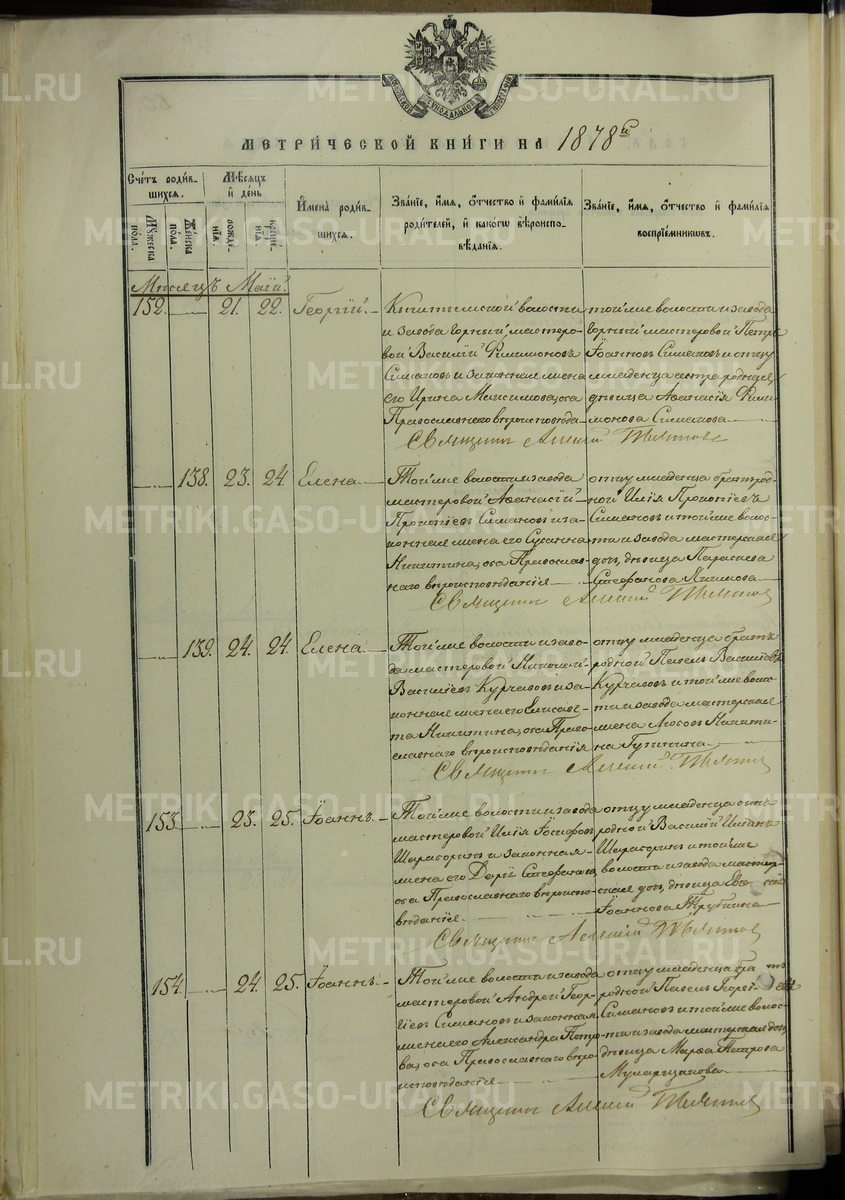 МОСКОВСКОЙ СѴНОДАЛЬНОЙ ТИПОГРАФІИ
МЕТРИ́ЧЕСКОЙ КНИ́ГИ НА 1878й
Сче́тъ роди́в-
шихся.
Мѣ́сяцъ
и҆ де́нь
И҆мена̀ роди́в-
шихся.
Зва́нїе, и҆́мѧ, ѻ҆́тчество и҆ фами́лїѧ
роди́телей, и҆ какогѡ вѣроиспо-
вѣ́данїѧ.
Зва́нїе, и҆́мѧ, ѻ҆́тчество и҆ фами́лїѧ
воспрїе́мникѡвъ.
Мꙋ́жеска
по́ла.
Же́нска
по́ла.
рожде-
нїѧ.
креще-
нїѧ.
Мѣсяцъ Маій.
152. 21. 22. Георгій.
Кыштымской волости
и завода горный мастеро-
вой Василій Филимоновъ
Симановъ и законная жена
его Ирина Максимова, оба
Православнаго вѣроисповѣда.
той же волости и завода
горный мастеровой Петръ
Іоанновъ Симановъ и отцу
младенца сестра родная,
дѣвица Афанасія Фили-
монова Симанова
Священникъ Алексій
138. 23. 24. Елена
Той же волости и завода
мастеровой Афанасій
Прокопіевъ Симановъ и за-
конная жена его Сусанна
Никитина, оба Православ-
наго вѣроисповѣданія
отцу младенца братъ род-
ной Илія Прокопіевъ
Симановъ и той же волос-
ти и завода мастерская
дочь, дѣвица Параскева
Стефанова Якимова
Священникъ Алексій
139. 24. 24. Елена
Той же волости и заво-
да мастеровой Николай
Василіевъ Курчавовъ и за-
конная жена его Елисаве-
та Никитина, оба Право-
славнаго вѣроисповѣданія
отцу младенца братъ
родной Павелъ Василіевъ
Курчавовъ и той же волос-
ти и завода мастерская
жена Любовь Никити-
на
Священникъ Алексій
153. 23. 25. Іоаннъ
Той же волости и завода
мастеровой Илія Іосифовъ
Шараборинъ и законная
жена его Дарія Стефанова,
оба Православнаго вѣроиспо-
вѣданія
отцу младенца сынъ
родной Василій Иліинъ
Шараборинъ и той же
волости и завода мастер-
ская дочь, дѣвица
Іоаннова Трубина
Священникъ Алексій
154. 24. 25. Іоаннъ
Той же волости и завода
мастеровой Андрей Геор-
гіевъ Симановъ и законная
жена его Александра Петро-
ва, оба Православнаго вѣро-
исповѣданія
отцу младенца братъ
родной Павелъ Георгіевъ
Симановъ и той же волос-
ти и завода мастерская дочь,
дѣвица Марѳа Петрова
Священникъ Алексій
METRIKI.GASO-URAL.RU